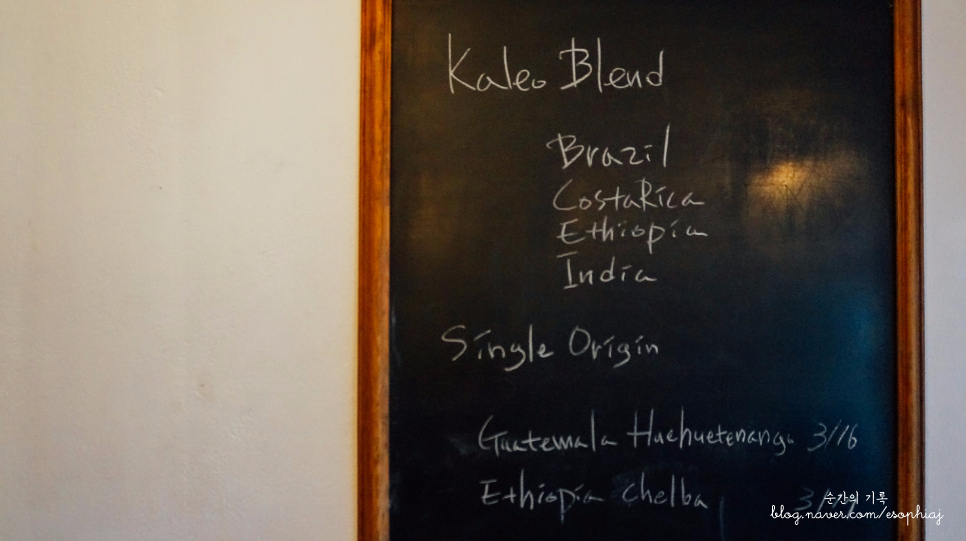 Kaleo Blend
Brazil
CostaRica
Ethiopia
India
Single Origin
Guatemala Huehuetenango 3/16
Ethiopia Chelba
순간의 기록
blog.naver.com/esophiaj